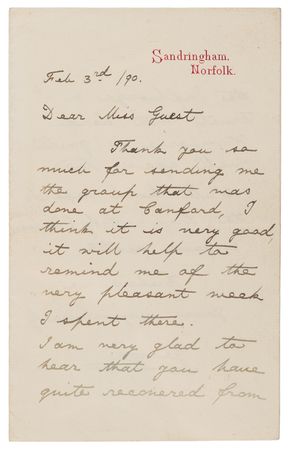 Sandringham.
Norfolk.
Feb 3rd /90.
Dear Miss Guest
Thank you so
much for sending me
the group that was
done at Canford, I
think it is very good,
it will help to
remind me of the
very pleasant week
I spent there.
I am very glad to
hear that you have
quite recovered from